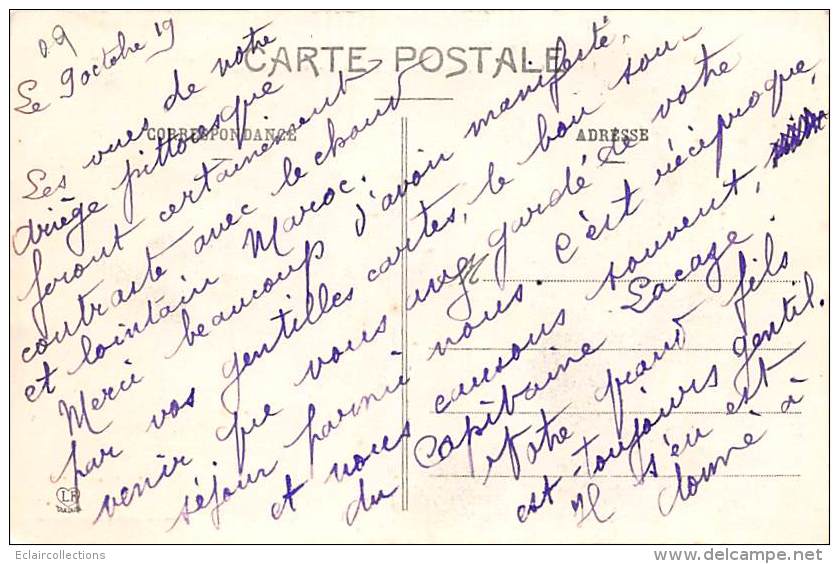 09
Le 9 octobre 19
CARTE POSTALE
CORRESPONDANCE
ADRESSE
Les vues de votre
Ariège pittoresque
feront certainement
contraste avec le chaud
et lointain Maroc.
Merci beaucoup d'avoir manifesté,
par vos gentilles cartes, le bon sou-
venir que vous avez gardé de votre
séjour parmi nous. C'est réciproque,
et nous causons souvent,
du Capitaine Lacaze.
Votre grand fils
est toujours gentil.
Il s'en est
donné à
Eclaircollections
delcampe.net